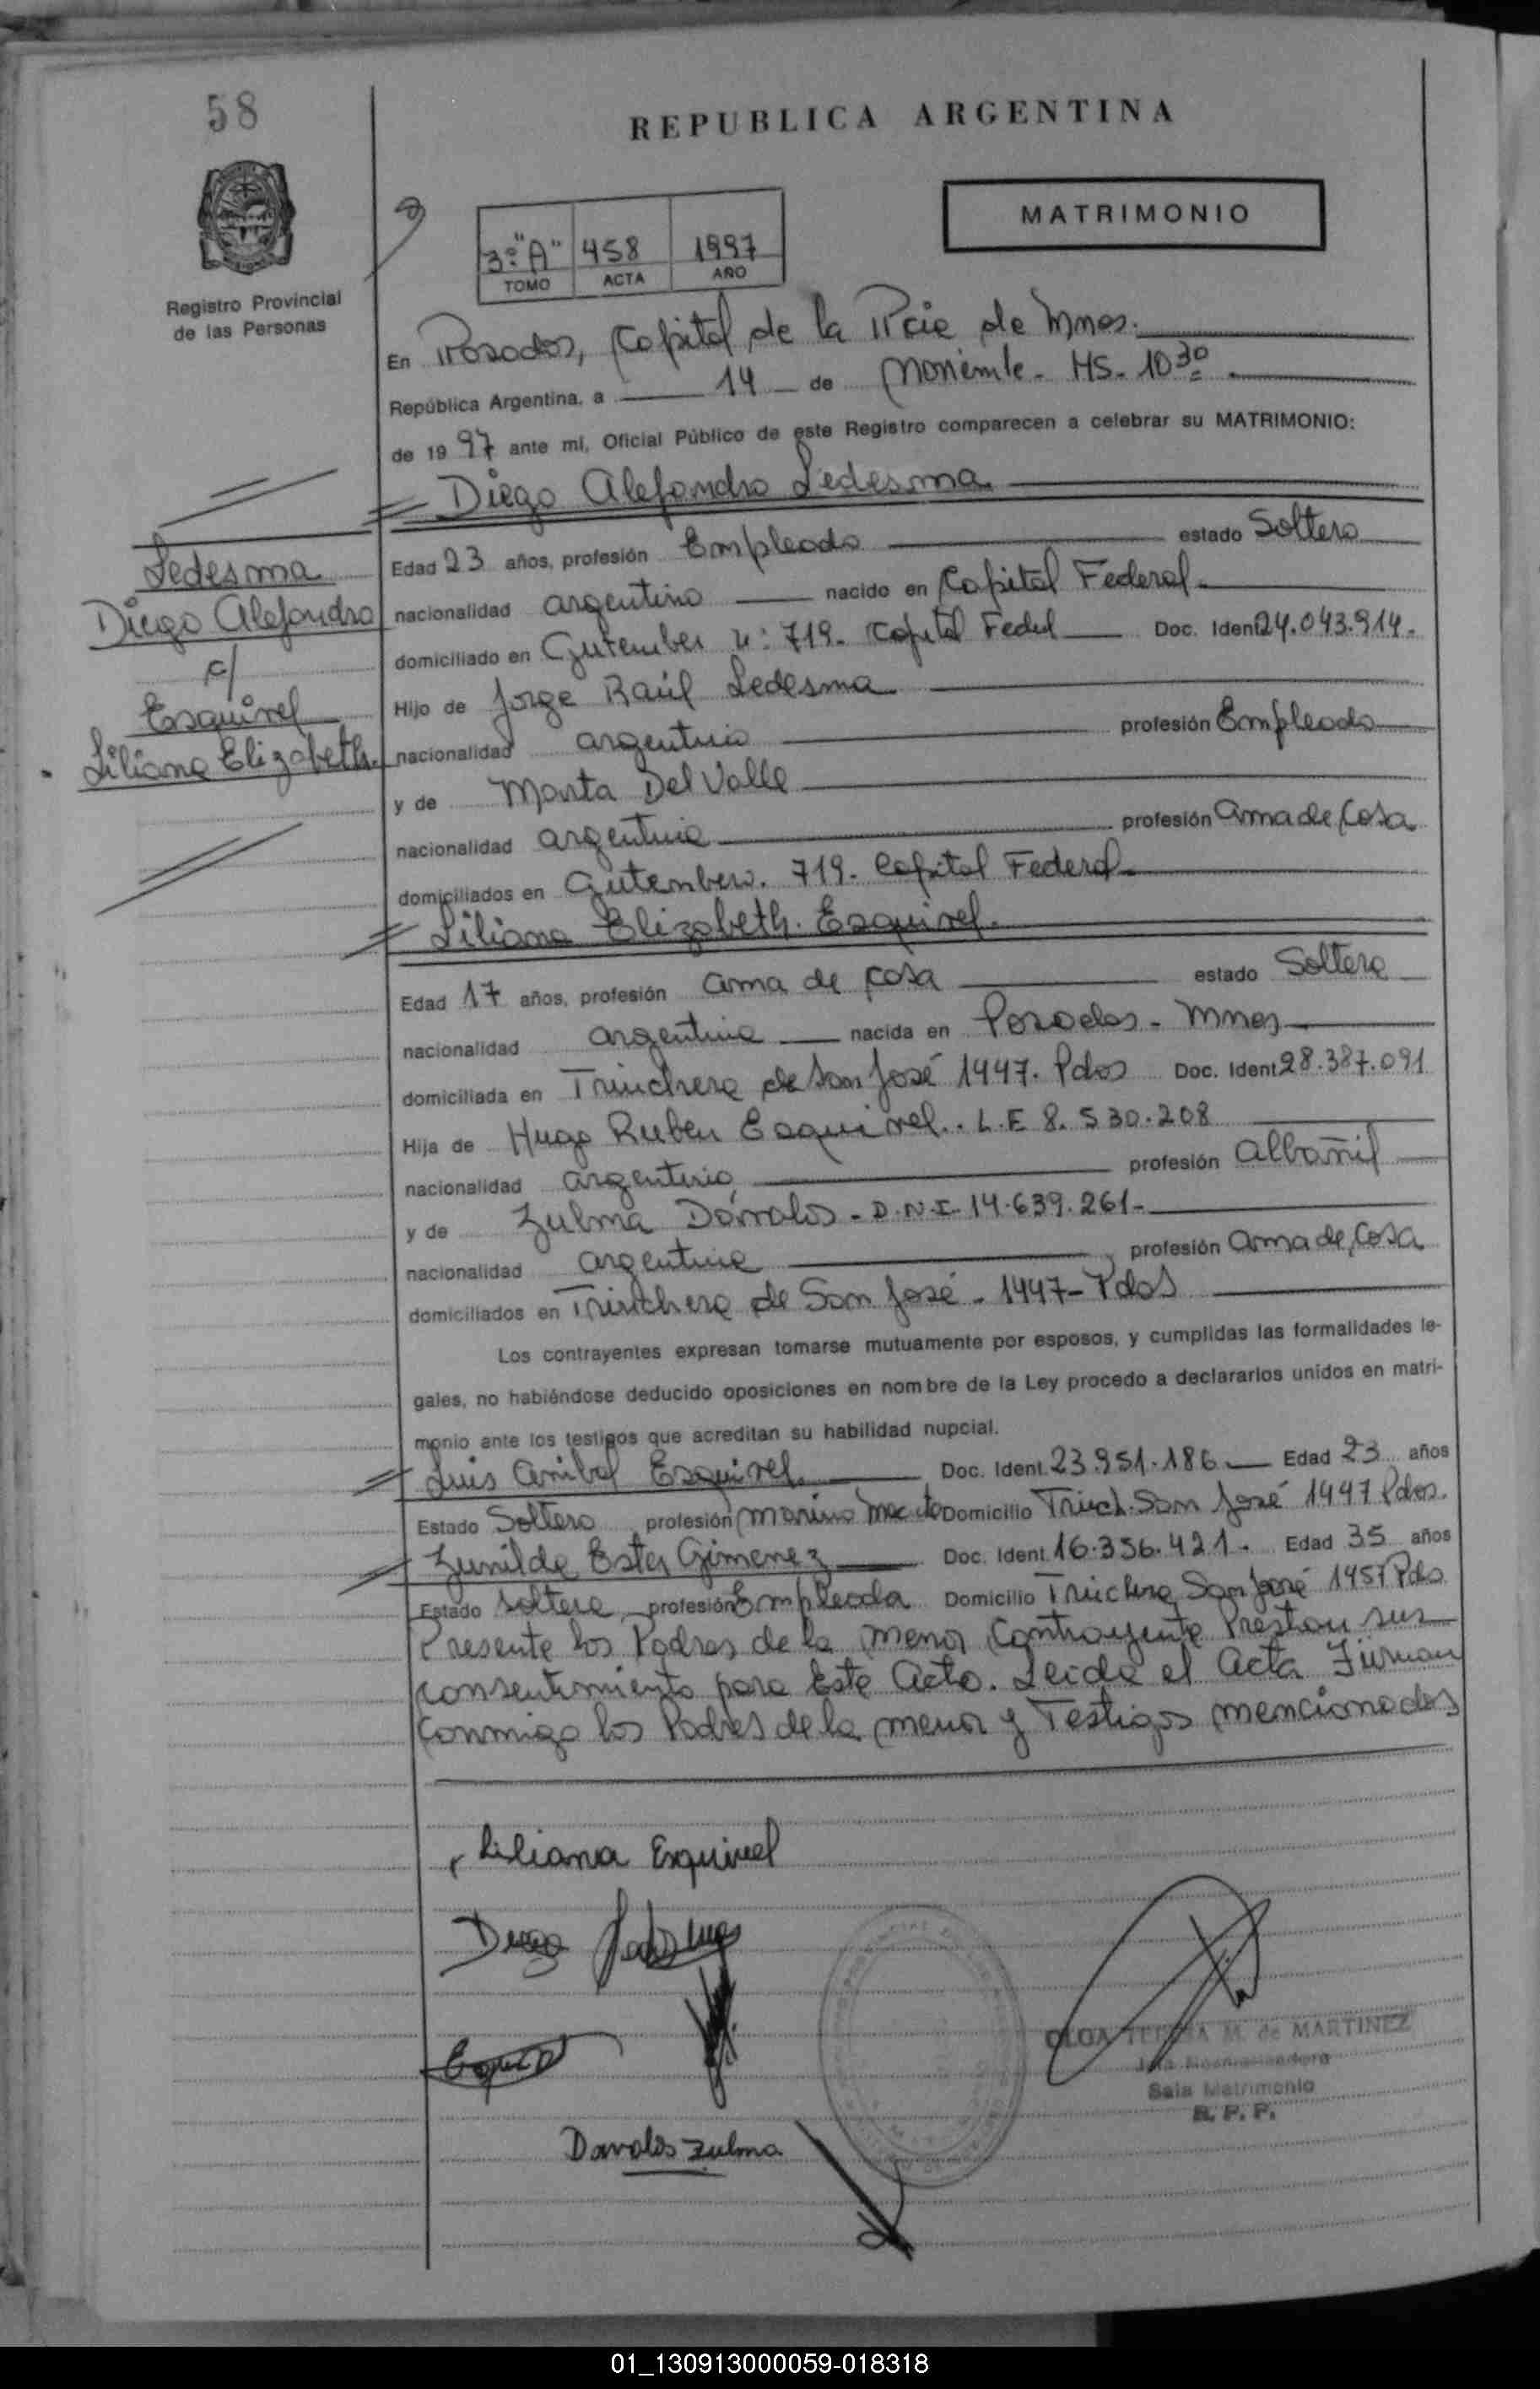 58
REPUBLICA ARGENTINA
MATRIMONIO
3º "A" 458 1997
TOMO ACTA AÑO
Registro Provincial
de las Personas
En Posadas, Capital de la Pcie de Mnes.
República Argentina, a 14 de Noviembre - HS. 10 30
de 19 97 ante mí, Oficial Público de este Registro comparecen a celebrar su MATRIMONIO:
Diego Alejandro Ledesma
Ledesma
Diego Alejandro
c/
Esquivel
Liliana Elizabeth.
Edad 23 años, profesión Empleado estado Soltero
nacionalidad argentino nacido en Capital Federal
domiciliado en Gutember nº 719. Capital Fedel Doc. Ident 24.043.914.
Hijo de Jorge Raúl Ledesma
nacionalidad argentino profesión Empleado
y de Marta Del Valle
nacionalidad argentina profesión ama de Casa
domiciliados en 719. Capital Federal
Liliana Elizabeth. Esquivel.
Edad 17 años, profesión ama de casa estado Soltera
nacionalidad argentina nacida en Posadas - Mnes
domiciliada en Trinchera de San José 1447. Pdas Doc. Ident 28.387.091
Hija de Hugo Ruben Esquivel.. L.E 8.530.208
nacionalidad argentino profesión albañil
y de Zulma Dávalos - D.N.I. 14.639.261-
nacionalidad argentina profesión ama de Casa
domiciliados en Trinchera de San José - 1447- Pdas
Los contrayentes expresan tomarse mutuamente por esposos, y cumplidas las formalidades le-
gales, no habiéndose deducido oposiciones en nombre de la Ley procedo a declararlos unidos en matri-
monio ante los testigos que acreditan su habilidad nupcial.
Luis Anibal Esquivel Doc. Ident. 23.951.186 Edad 23 años
Estado Soltero profesión Marino Domicilio Trinch. San José 1447 Pdas.
Zunilda Ester Gimenez Doc. Ident. 16.356.421. Edad 35 años
Estado soltera profesión Empleada Domicilio Trinchera San José 1457 Pdas
Presente los Padres de la menor Contrayente Prestan sus
consentimiento para Este Acto. Leida el Acta Firman
Conmigo los Padres de la menor y Testigos mencionados
Liliana Esquivel
Diego Ledesma
Davalos Zulma
OLGA TERESA M. de MARTINEZ
Sala Matrimonio
R. P. P.
01_130913000059-018318